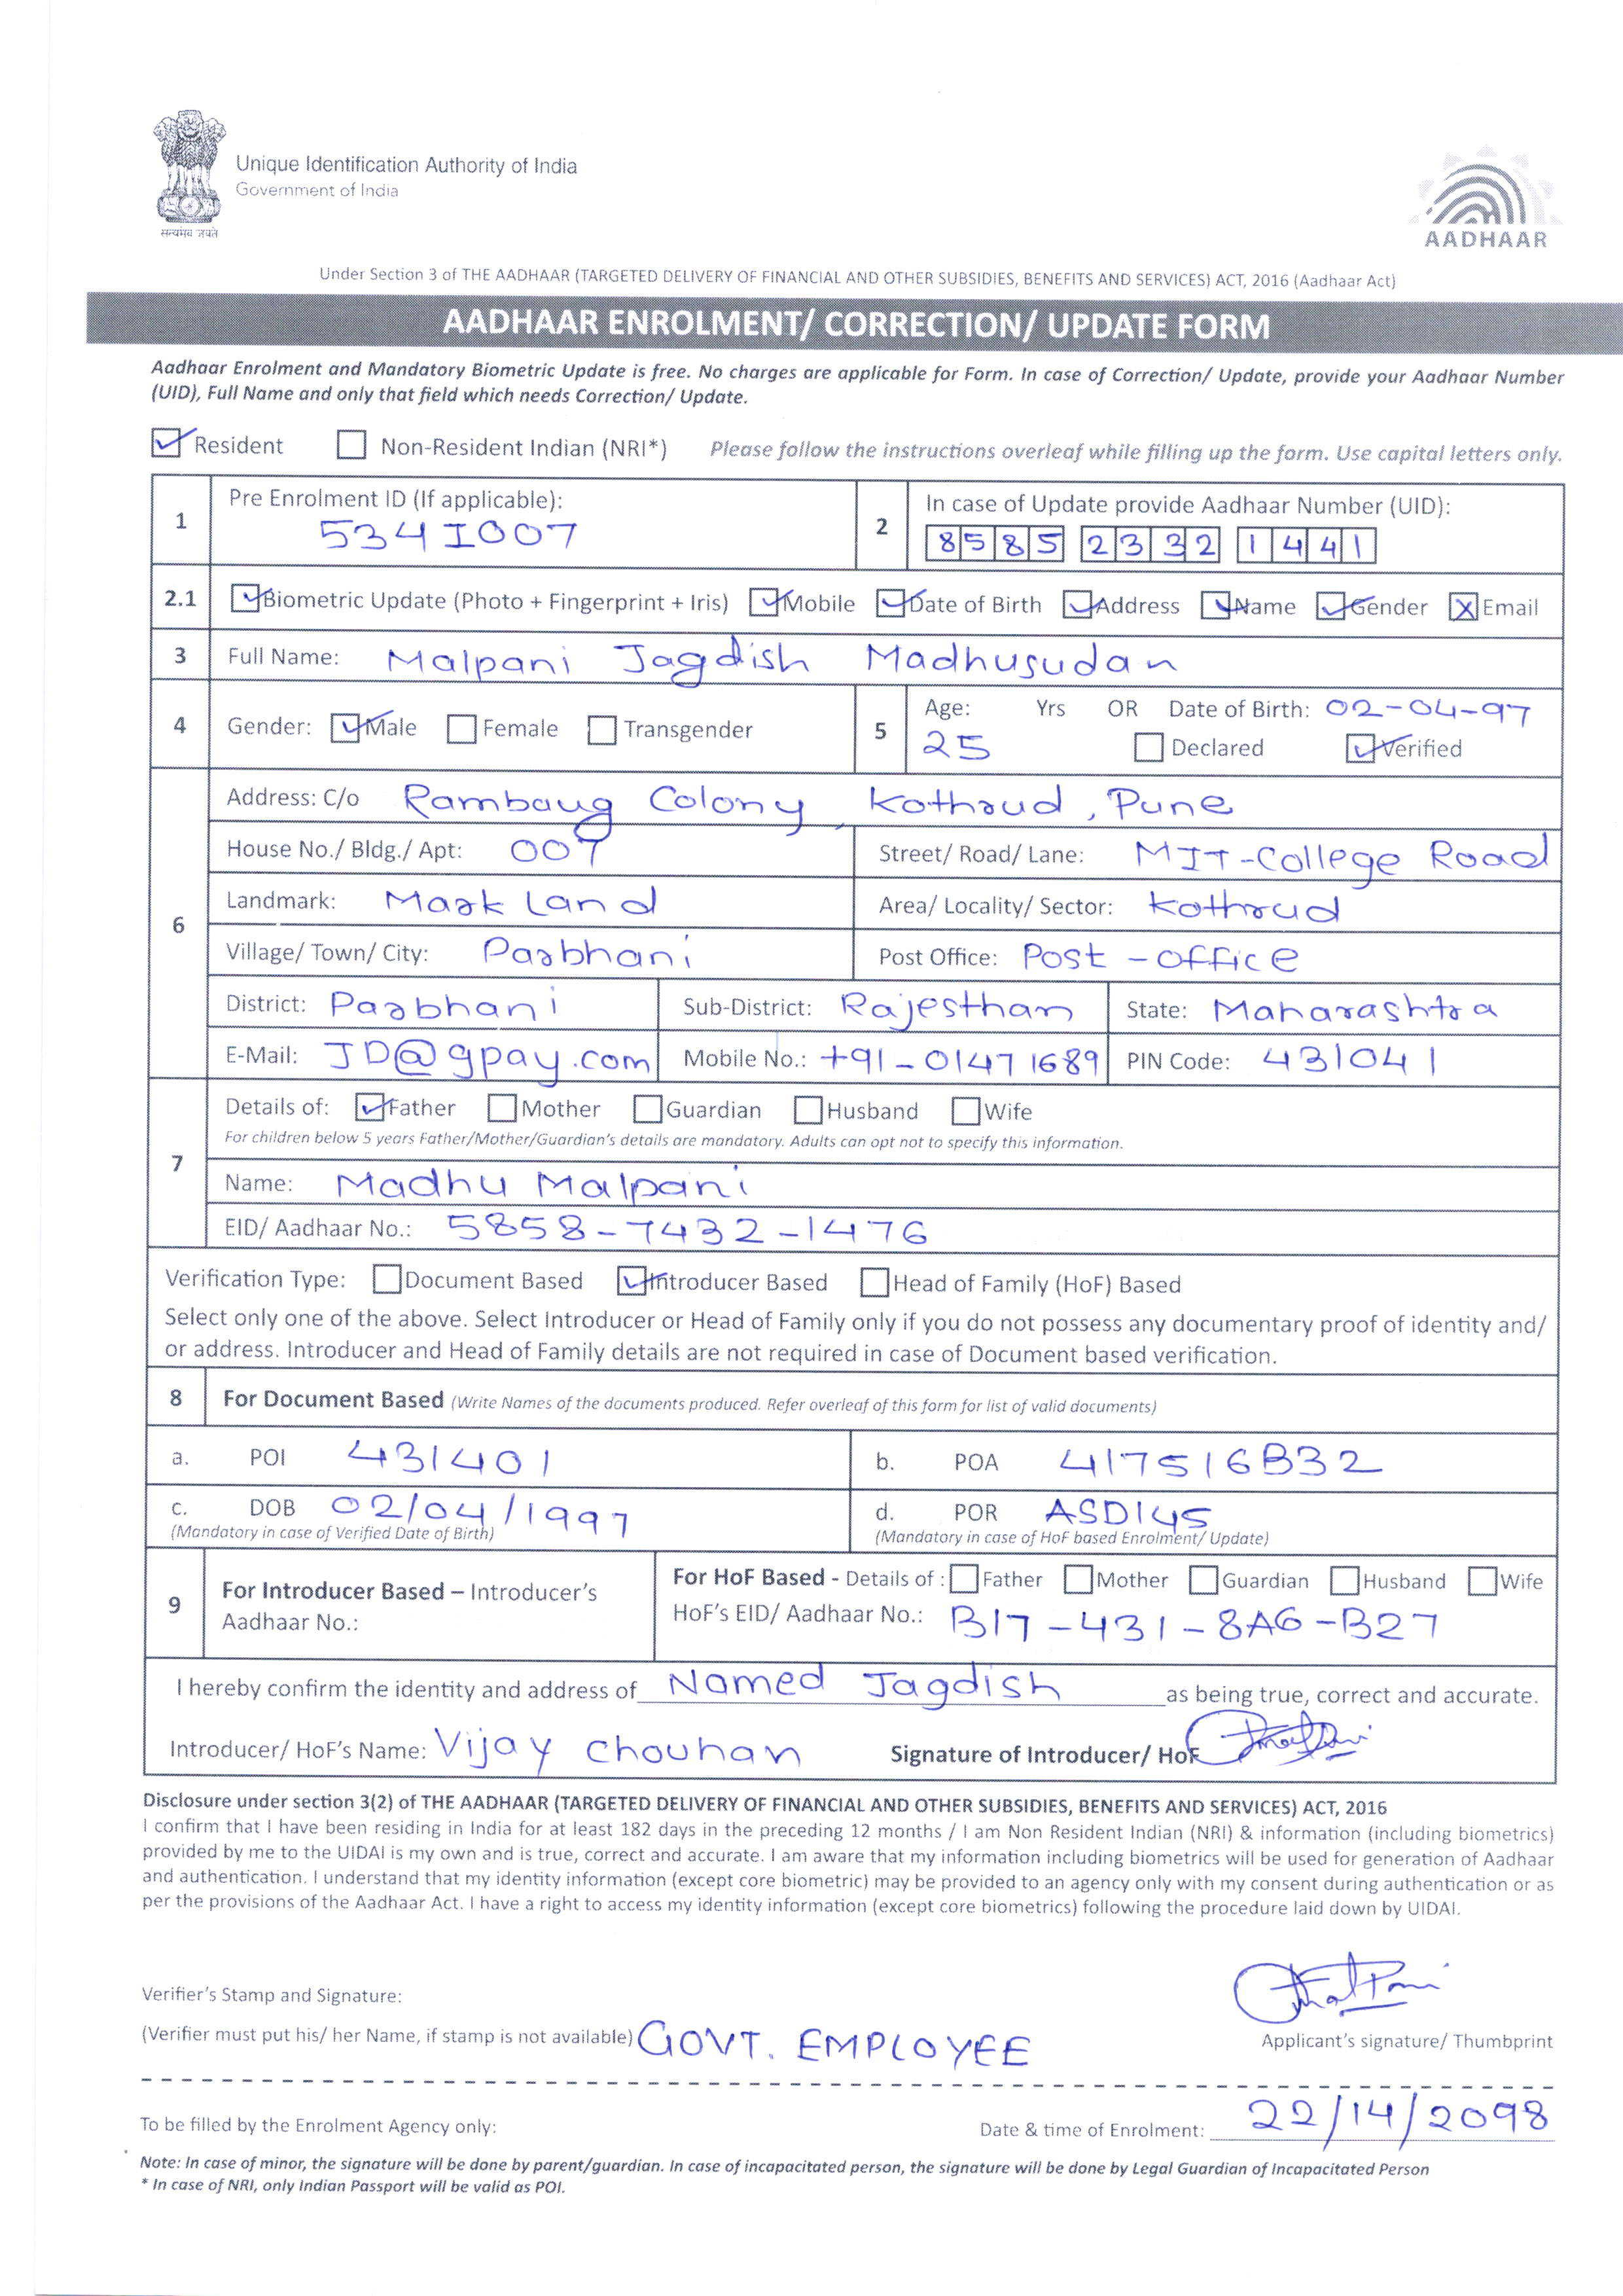 सत्यमेव जयते
Unique Identification Authority of India
Government of India
AADHAAR
Under Section 3 of THE AADHAAR (TARGETED DELIVERY OF FINANCIAL AND OTHER SUBSIDIES, BENEFITS AND SERVICES) ACT, 2016 (Aadhaar Act)
AADHAAR ENROLMENT/ CORRECTION/ UPDATE FORM
Aadhaar Enrolment and Mandatory Biometric Update is free. No charges are applicable for Form. In case of Correction/ Update, provide your Aadhaar Number
(UID), Full Name and only that field which needs Correction/ Update.
Resident Non-Resident Indian (NRI*) Please follow the instructions overleaf while filling up the form. Use capital letters only.
1 Pre Enrolment ID (If applicable):
534I007
2 In case of Update provide Aadhaar Number (UID):
8585 2332 1441
2.1 Biometric Update (Photo + Fingerprint + Iris) Mobile Date of Birth Address Name Gender Email
3 Full Name: Malpani Jagdish Madhusudan
4 Gender: Male Female Transgender
5 Age: Yrs OR Date of Birth: 02-04-97
25 Declared Verified
6 Address: C/o Rambaug Colony, Kothrud, Pune
House No./ Bldg./ Apt: 007 Street/ Road/ Lane: MIT-College Road
Landmark: Mark Land Area/ Locality/ Sector: Kothrud
Village/ Town/ City: Parbhani Post Office: Post - office
District: Parbhani Sub-District: Rajesthan State: Maharashtra
E-Mail: JD@gpay.com Mobile No.: +91-01471689 PIN Code: 431041
7 Details of: Father Mother Guardian Husband Wife
For children below 5 years Father/Mother/Guardian's details are mandatory. Adults can opt not to specify this information.
Name: Madhu Malpani
EID/ Aadhaar No.: 5858-7432-1476
Verification Type: Document Based Introducer Based Head of Family (HoF) Based
Select only one of the above. Select Introducer or Head of Family only if you do not possess any documentary proof of identity and/
or address. Introducer and Head of Family details are not required in case of Document based verification.
8 For Document Based (Write Names of the documents produced. Refer overleaf of this form for list of valid documents)
a. POI 431401 b. POA 417516B32
c. DOB 02/04/1997 d. POR ASD145
(Mandatory in case of Verified Date of Birth) (Mandatory in case of HoF based Enrolment/ Update)
9 For Introducer Based – Introducer's
Aadhaar No.:
For HoF Based - Details of : Father Mother Guardian Husband Wife
HoF's EID/ Aadhaar No.: B17-431-8A6-B27
I hereby confirm the identity and address of Named Jagdish as being true, correct and accurate.
Introducer/ HoF's Name: Vijay Chouhan Signature of Introducer/ HoF
Disclosure under section 3(2) of THE AADHAAR (TARGETED DELIVERY OF FINANCIAL AND OTHER SUBSIDIES, BENEFITS AND SERVICES) ACT, 2016
I confirm that I have been residing in India for at least 182 days in the preceding 12 months / I am Non Resident Indian (NRI) & information (including biometrics)
provided by me to the UIDAI is my own and is true, correct and accurate. I am aware that my information including biometrics will be used for generation of Aadhaar
and authentication. I understand that my identity information (except core biometric) may be provided to an agency only with my consent during authentication or as
per the provisions of the Aadhaar Act. I have a right to access my identity information (except core biometrics) following the procedure laid down by UIDAI.
Verifier's Stamp and Signature:
(Verifier must put his/ her Name, if stamp is not available) GOVT. EMPLOYEE
Applicant's signature/ Thumbprint
To be filled by the Enrolment Agency only: Date & time of Enrolment: 22/14/2098
Note: In case of minor, the signature will be done by parent/guardian. In case of incapacitated person, the signature will be done by Legal Guardian of Incapacitated Person
* In case of NRI, only Indian Passport will be valid as POI.